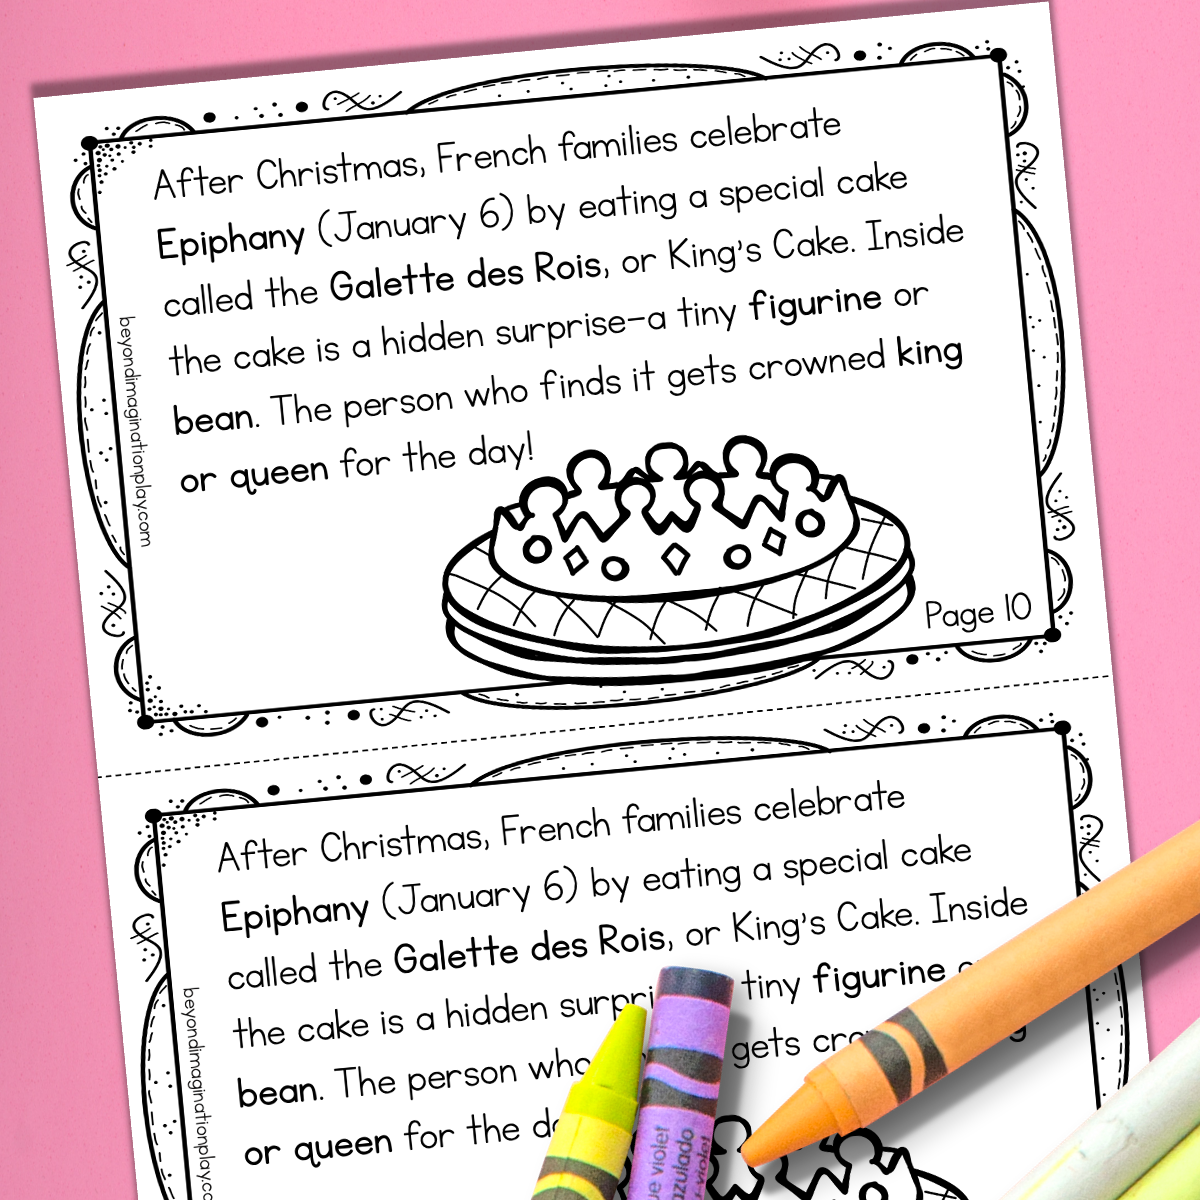 After Christmas, French families celebrate
Epiphany (January 6) by eating a special cake
called the Galette des Rois, or King's Cake. Inside
the cake is a hidden surprise–a tiny figurine or
bean. The person who finds it gets crowned king
or queen for the day!
beyondimaginationplay.com
Page 10
After Christmas, French families celebrate
Epiphany (January 6) by eating a special cake
called the Galette des Rois, or King's Cake. Inside
the cake is a hidden tiny figurine
bean. The person who gets
or queen for the
violet
azulado
violet